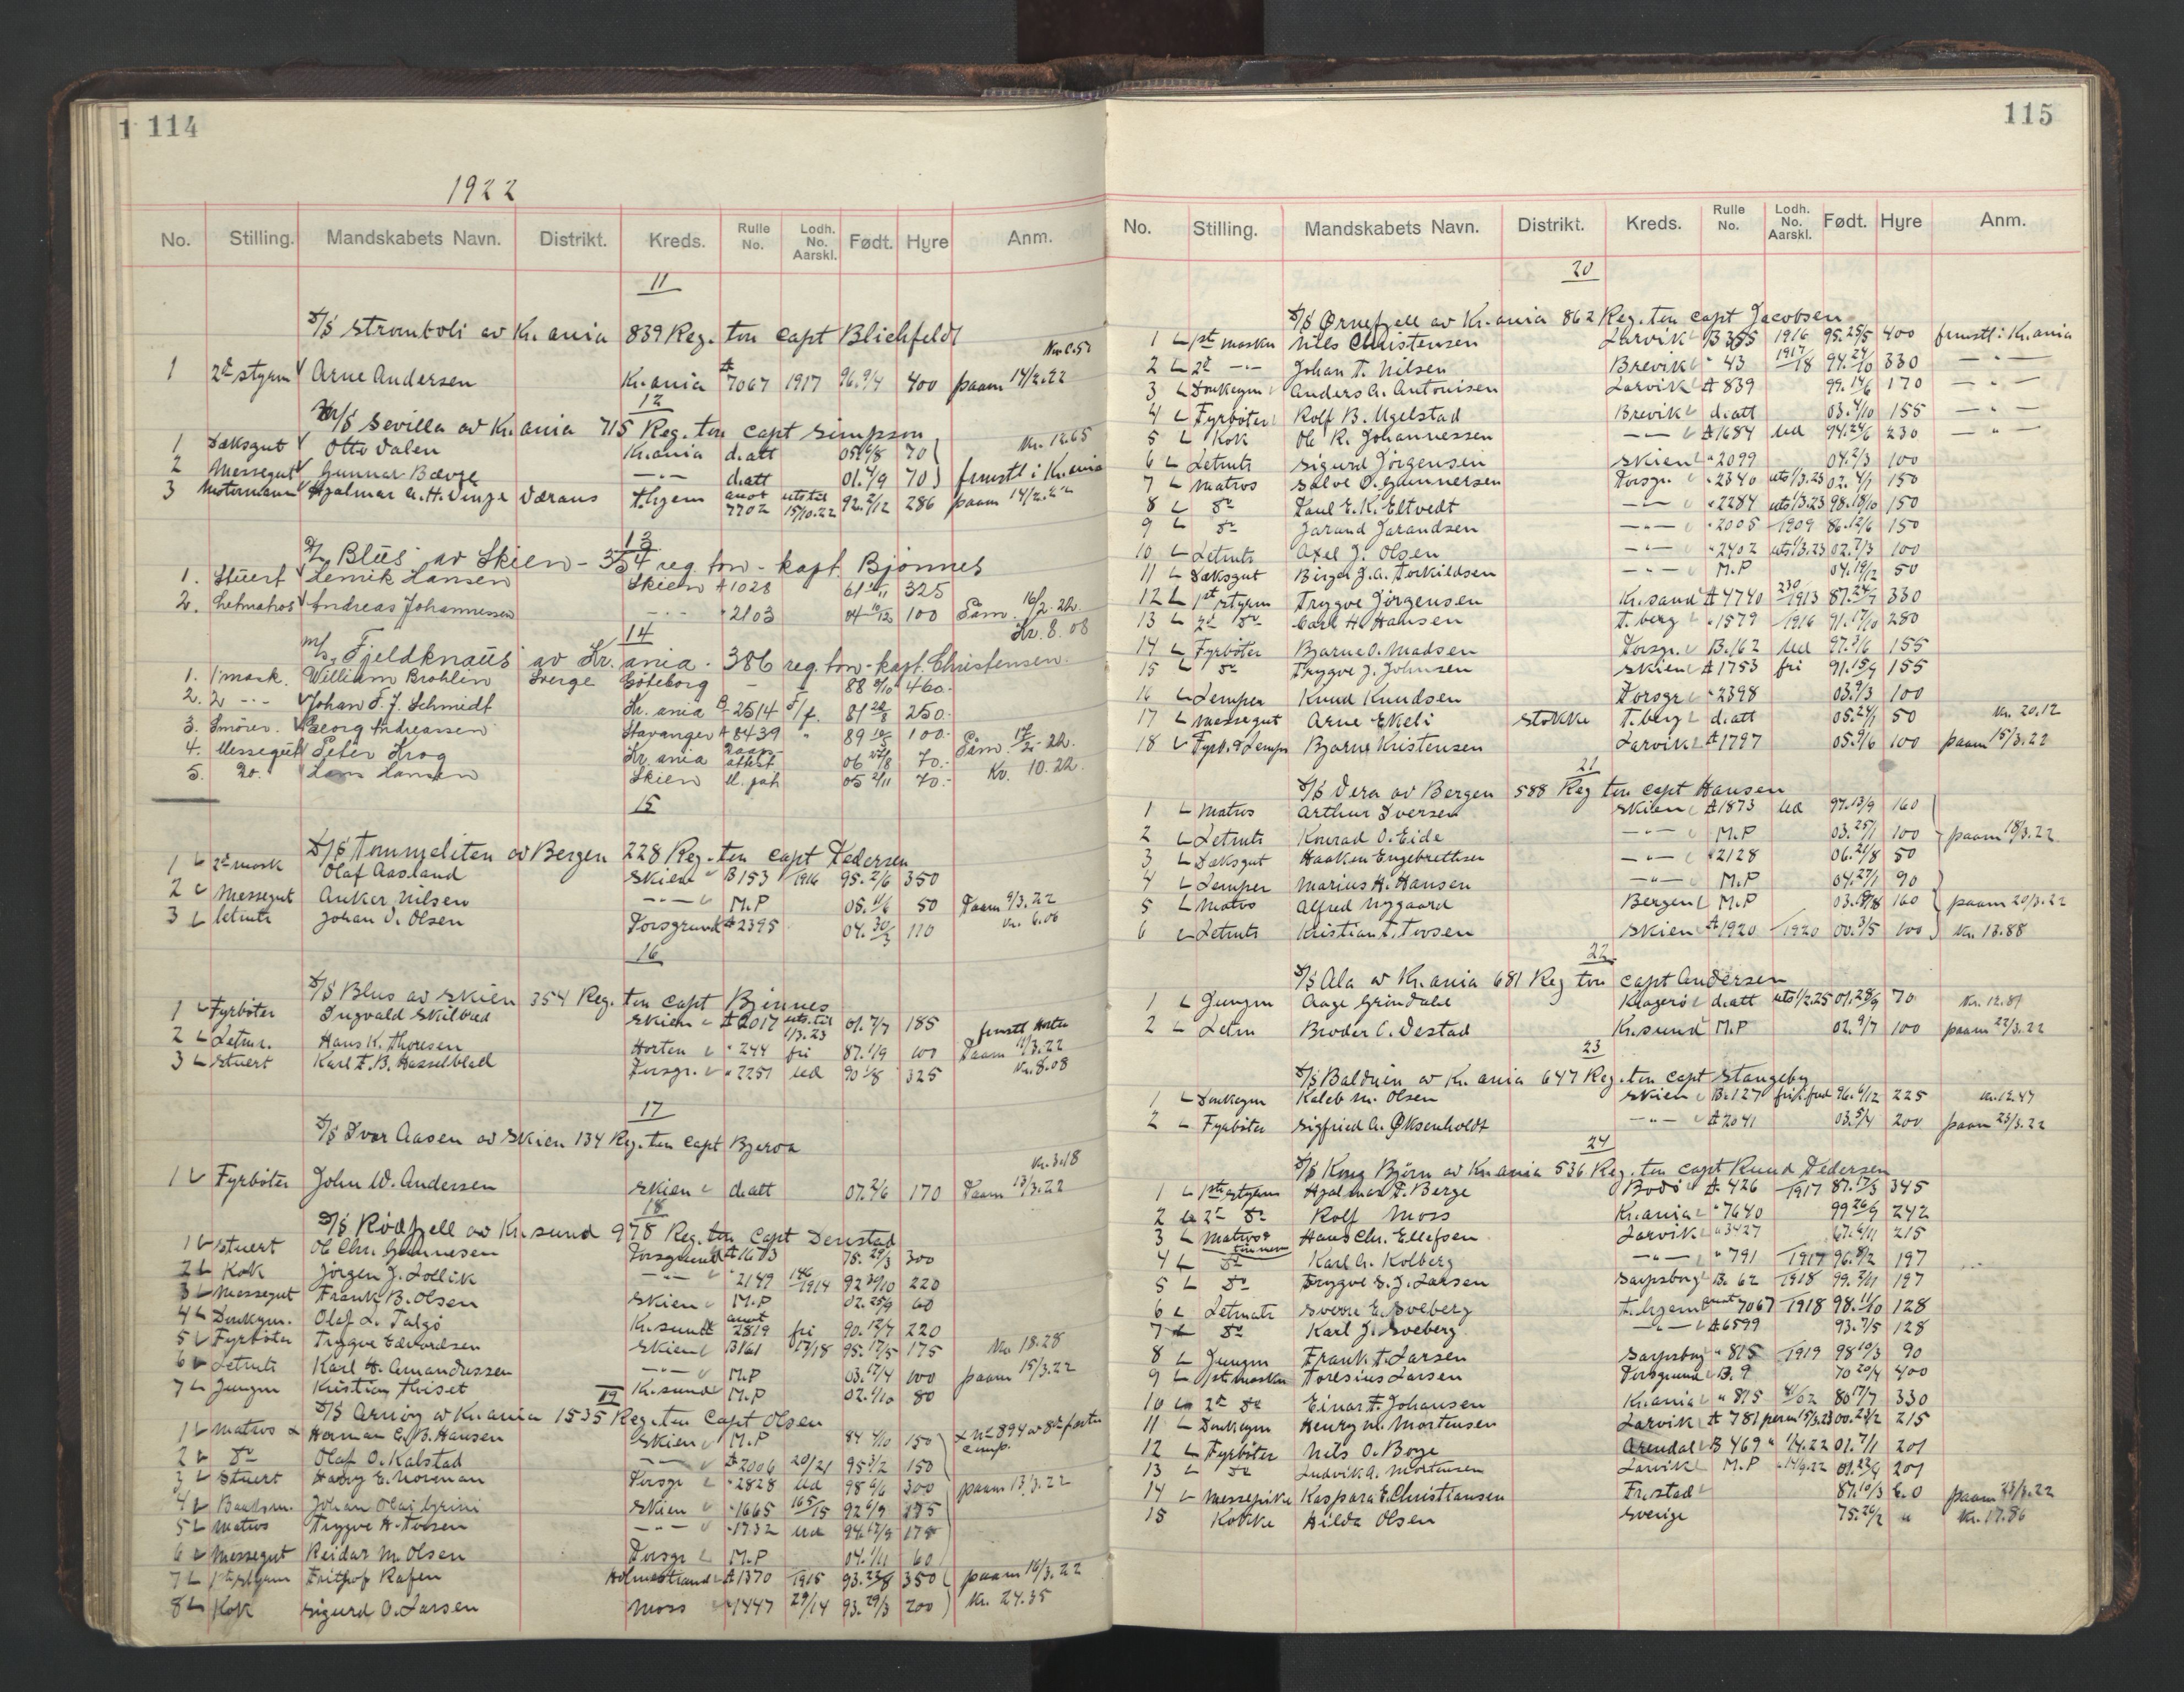 1 114
1922
No. Stilling. Mandskabets Navn. Distrikt. Kreds. Rulle No. Lodh. No. Aarskl. Født. Hyre Anm.
11
S/S Stromboli av Kr.ania 839 Reg. ton Capt Blichfeldt
1 2de styrm Arne Andersen Kr.ania A 7067 1917 96. 9/4 400 paam 14/2.22
12
M/S Sevilla av Kr.ania 715 Reg. ton Capt Simpson
1 Dæksgut Otto Dalen Kr.ania d.att 05. 6/8 70 Kr. 12.65
2 Messegut Gunnar Bævre —"— d.att 01. 4/9 70 frmstl i Kr.ania
3 Motormann Hjalmar A.H. Vinje Værans T.hjem anot 7702 uts til 15/10.22 92. 2/12 286 paam 14/2.22
13
D/S Blus av Skien - 354 reg. ton - kapt. Bjönnes
1. Stuert Henrik Hansen Skien A 1028 61 325
2. Letmatros Andreas Johannessen —"— " 2103 04 10/12 100 Paam. 16/2.22.
Kr. 8.08
14
M/S Fjeldknaus av Kr.ania. 386 reg. ton - kapt. Christensen.
1. 1 mask. William Brohlen Sverge Göteborg - - 88 9/10 460.-
2. 2 —"— Johan F. J. Schmidt Kr. ania B 2514 81 28/8 250.-
3. Smörer. Georg Andreassen Stavanger A 8439 " 89 100.-
4. Messegut Peter Krog Kr. ania attest 06 70.- Paam. 17/2-22.
5. Do. Hans Hansen Skien M. pah 05 2/11 70.- Kr. 10.22.
15
D/S Tommeliten av Bergen 228 Reg. ton Capt Pedersen
1 2de mask Olaf Aasland Skien B 153 1916 95. 2/6 350
2 Messegut Anker Nilsen —"— M.P 05. 50 Paam 9/3.22
3 letmts Johan O. Olsen Porsgrund A 2395 04. 30/3 110 Kr. 6.06
16
S/S Blus av Skien 354 Reg. ton Capt Bjönnes
1 Fyrböter Ingvald Skilbred Skien A 2017 uts. til 1/3.23 01. 7/7 185 frmstl Horten
2 Letmr. Hans K. Thoresen Horten " 244 fri 87. 1/9 100 Paam 11/3.22
3 Stuert Karl F. B. Hasselblad Porsgr. " 2251 Ud 90 1/8 325 Kr. 8.08
17
S/S Ivar Aasen av Skien 134 Reg. ton Capt Bjerva
1 Fyrböter John W. Andersen Skien d.att 07. 2/6 170 Paam 13/3.22
Kr. 3.18
18
S/S Rödfjell av Kr.sund 978 Reg. ton Capt Denstad
1 Stuert Ole Chr. Gunnesen Porsgrund A 1673 75. 29/3 300
2 Kok Jörgen J. Lollik —"— " 2149 146/1914 92 30/10 220
3 Messegut Frank B. Olsen Skien M.P 02. 25/9 60
4 Donkeym. Olaf L. Talgö Kr.sund anot 2819 fri 90. 12/7 220
5 Fyrböter Trygve Edvardsen Skien B 161 17/18 95. 17/5 175 Kr. 18.28
6 Letmts Karl H. Amandussen —"— M.P 03. 17/4 100 paam 15/3.22
7 Jungm Kristian Thiset Kr.sund M.P 02. 1/10 80
19
S/S Arnöy av Kr.ania 1535 Reg. ton Capt Olsen
1 Matros x Herman E. B. Hansen Skien M.P 84 4/10 150 x No 894
2 do Olaf O. Kalstad —"— A 2006 20/21 95 3/2 150
3 Stuert Harry E. Norman Porsgr " 2828 Ud 98 6/6 300 paam 13/3.22
4 Baadsm. Johan Olai Grini Skien " 1665 165/15 92 6/9 175
5 Matros Trygve H. Tovsen —"— " 1732 Ud 94. 17/9 178
6 Messegut Reidar M. Olsen Porsgr M.P 04. 1/11 60
7 1ste styrm Fritjof Rafen Holmestrand A 1370 1915 93. 23/8 350 paam 16/3.22
8 Kok Sigurd O. Larsen Moss " 1447 29/14 93. 29/3 200 Kr. 24.35
115
No. Stilling. Mandskabets Navn. Distrikt. Kreds. Rulle No. Lodh. No. Aarskl. Født. Hyre Anm.
20
S/S Ørnefjell av Kr.ania 862 Reg. ton Capt Jacobsen
1 1st maskn Nils Christensen Larvik B 355 1916 95. 25/5 400 frmstl: Kr.ania
2 2de —"— Johan T. Nilsen Brevik " 43 1917/18 94. 24/10 330 — " —
3 Donkeym Anders A. Antonisen Larvik A 839 99. 14/6 170 — " —
4 Fyrböter Rolf B. Ugelstad Brevik d.att 03. 4/10 155 — " —
5 Kok Ole K. Johannessen —"— A 1684 Ud 94. 24/6 230 — " —
6 Letmts Sigurd Jörgensen Skien " 2099 04. 2/3 100
7 Matros Salve O. Gunnersen Porsgr. " 2340 uts 1/3.23 02. 4/1 150
8 do Paul E. K. Eltvedt —"— " 2284 uts 1/3.23 98. 18/10 150
9 do Jarand Jarandsen —"— " 2005 1909 86. 12/6 150
10 Letmts Axel J. Olsen —"— " 2402 uts 1/3.23 02. 7/3 100
11 Dæksgut Birger J. A. Torkildsen —"— M.P 04. 19/12 50
12 1st styrm Trygve Jörgensen Kr.sand A 4740 230/1913 87. 24/7 330
13 2de do Carl H. Hansen T.berg " 1579 1916 91. 17/10 280
14 Fyrböter Bjarne O. Madsen Porsgr. B. 162 Ud 97. 3/6 155
15 do Trygve J. Johnsen Skien A 1753 fri 91. 15/9 155
16 Lemper Knud Knudsen Porsgr " 2398 03. 9/3 100
17 Messegut Arne Ekeli Stokke T.berg d.att 05. 24/1 50 Kr. 20.12
18 Fyrb. & Lemper Bjarne Kristensen Larvik A 1797 05. 9/6 100 paam 15/3.22
21
S/S Vera av Bergen 588 Reg ton Capt Hansen
1 Matros Arthur Iversen Skien A 1873 Ud 97. 13/9 160
2 Letmts Konrad O. Eide —"— M.P 03. 25/1 100 paam 18/3.22
3 Dæksgut Haakon Engebretsen —"— " 2128 06. 21/8 50
4 Lemper Marius H. Hansen —"— M.P 04. 27/1 90
5 Matros Alfred Nygaard Bergen M.P 03. 160 paam 20/3.22
6 Letmts Kristian T. Tovsen Skien A 1920 1920 00. 3/5 100 Kr. 13.88
22
S/S Ala av Kr.ania 681 Reg ton Capt Andersen
1 Jungm Aage Grindahl Kragerö d.att uts 1/2.25 01. 28/9 70 Kr. 12.81
2 Letm Broder C. Vestad Kr.sund M.P 02. 9/7 100 paam 22/3.22
23
S/S Balduin av Kr.ania 647 Reg. ton Capt Stangeby
1 Donkeym Kaleb M. Olsen Skien B. 127 96. 6/12 225 Kr. 12.47
2 Fyrböter Sigfried A. Øksenholdt —"— A 2041 03. 5/4 200 paam 23/3.22
24
S/S Kong Björn av Kr.ania 536 Reg. ton Capt Ruud Pedersen
1 1ste styrm Hjalmar F. Berge Bodö A. 426 1917 87. 17/3 345
2 2de do Rolf Moss Kr.ania " 7640 99 26/9 242
3 Matros & tömmerm Hans Chr. Ellefsen Larvik " 3427 67. 6/11 215
4 do Karl A. Kolberg —"— " 791 1917 96. 8/2 197
5 do Trygve S. J. Larsen Sarpsborg B. 62 1918 99. 2/11 197
6 Letmats Sverre E. Sveberg T.hjem anot 7067 1918 98. 11/10 128
7 do Karl J. Sveberg —"— A 6599 93. 7/5 128
8 Jungm Frank F. Larsen Sarpsborg " 815 1919 98 10/3 90
9 1st maskn Toresius Larsen Porsgrund B. 9 70 20/4 400
10 2de do Einar F. Johansen Kr.ania " 815 41/02 80 17/7 330
11 Donkeym Henry M. Mortensen Larvik A 781 perm 15/3.23 00. 23/2 215
12 Fyrböter Nils O. Boge Arendal B 469 " 1/4.22 01. 7/11 201
13 do Ludvik A. Mortensen Larvik M.P " 14/9.22 01. 23/9 201
14 Messepike Kaspara E. Christiansen Fr.stad 87. 10/3 60 paam 23/3.22
15 Kokke Hilda Olsen Sverige 75. 26/2 " Kr. 17.86